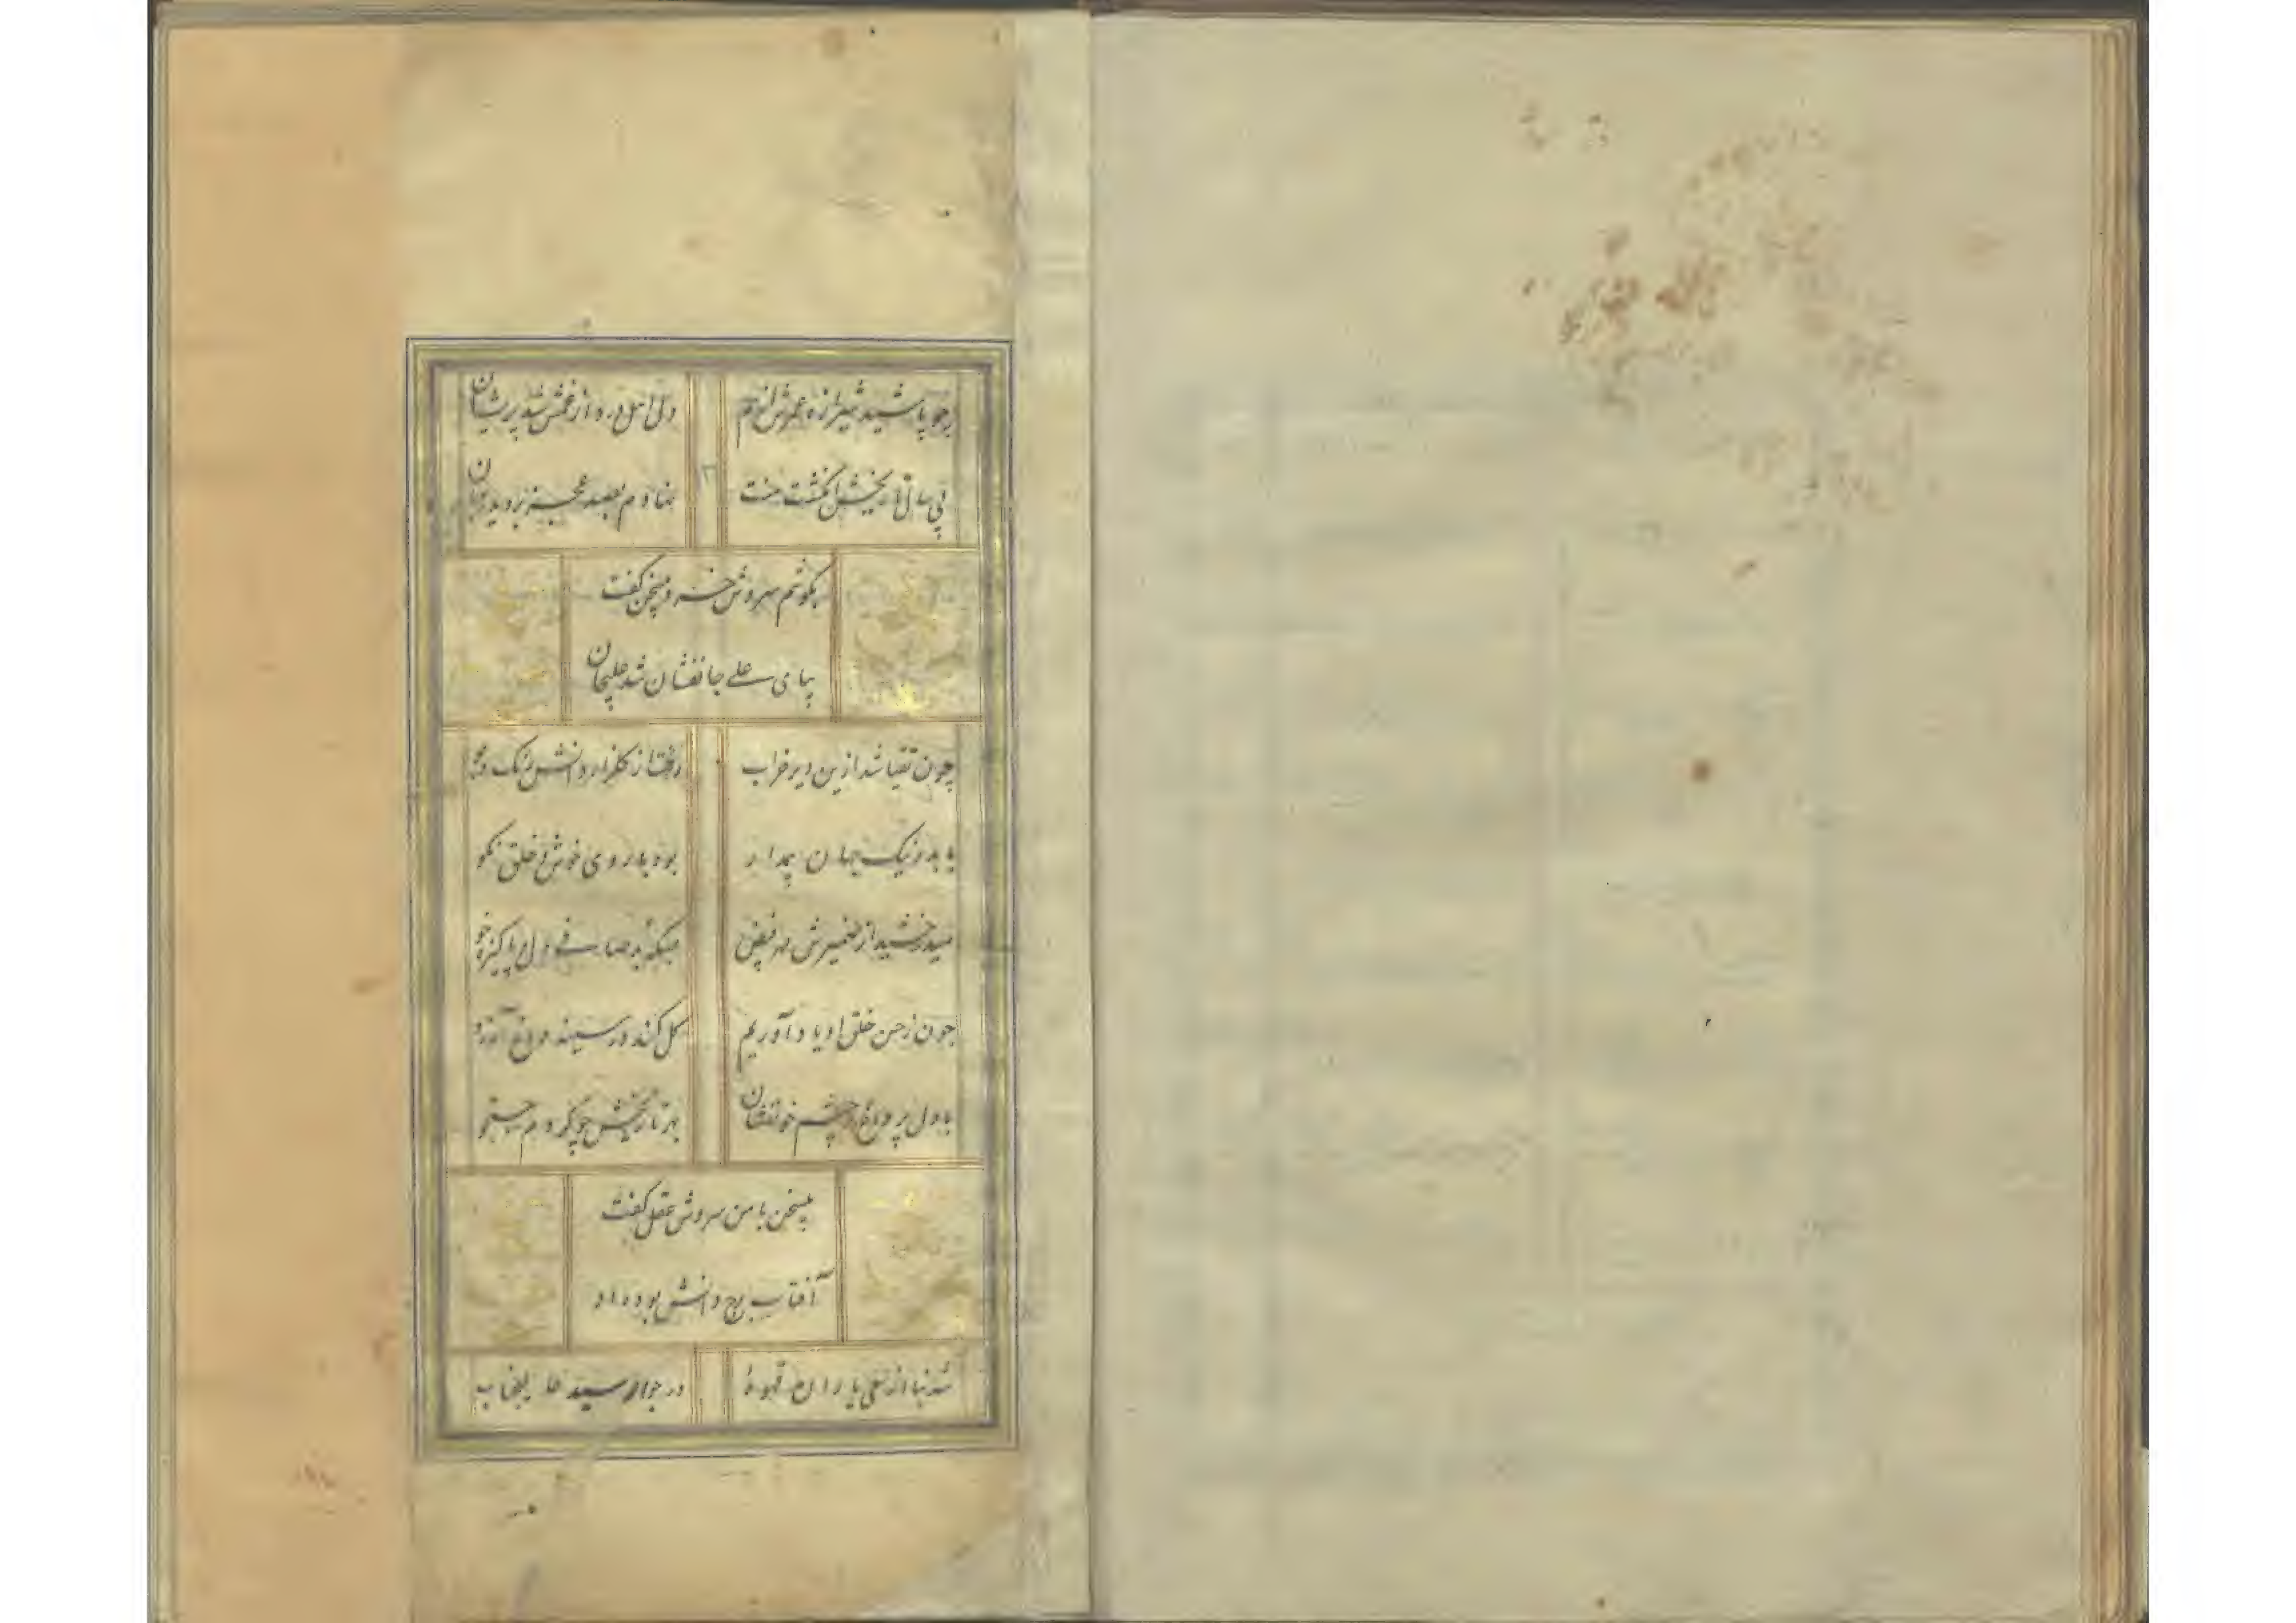 چو پاشید شیرازه عمرش از هم دل اهل درد از غمش شد پریشان
پی سال تاریخش انگشت منت نهادم بصد عجز بر دیده
بگوشم سروش خرد در سخن گفت
بپای علی جانفشان شد علیخان
چون تقیا شد ازین دیر خراب رفت از گلزار دانش رنک و بو
با بد و نیک جهان پیدار بود با روی خوش و خلق نکو
میدرخشید از ضمیرش مهر فیض میکه بد صافی دل پاکیزه خو
چون ز حسن خلق او یاد آوریم کل کند در سینه داغ آرزو
با دل پر داغ و چشم خونفشان بهر تاریخش چو کردم جستجو
بیسخن با من سروش عقل گفت
آفتاب برج دانش بود او
شد نیا از تقی یاران قهوهٔ در جوار سید عالیجناب